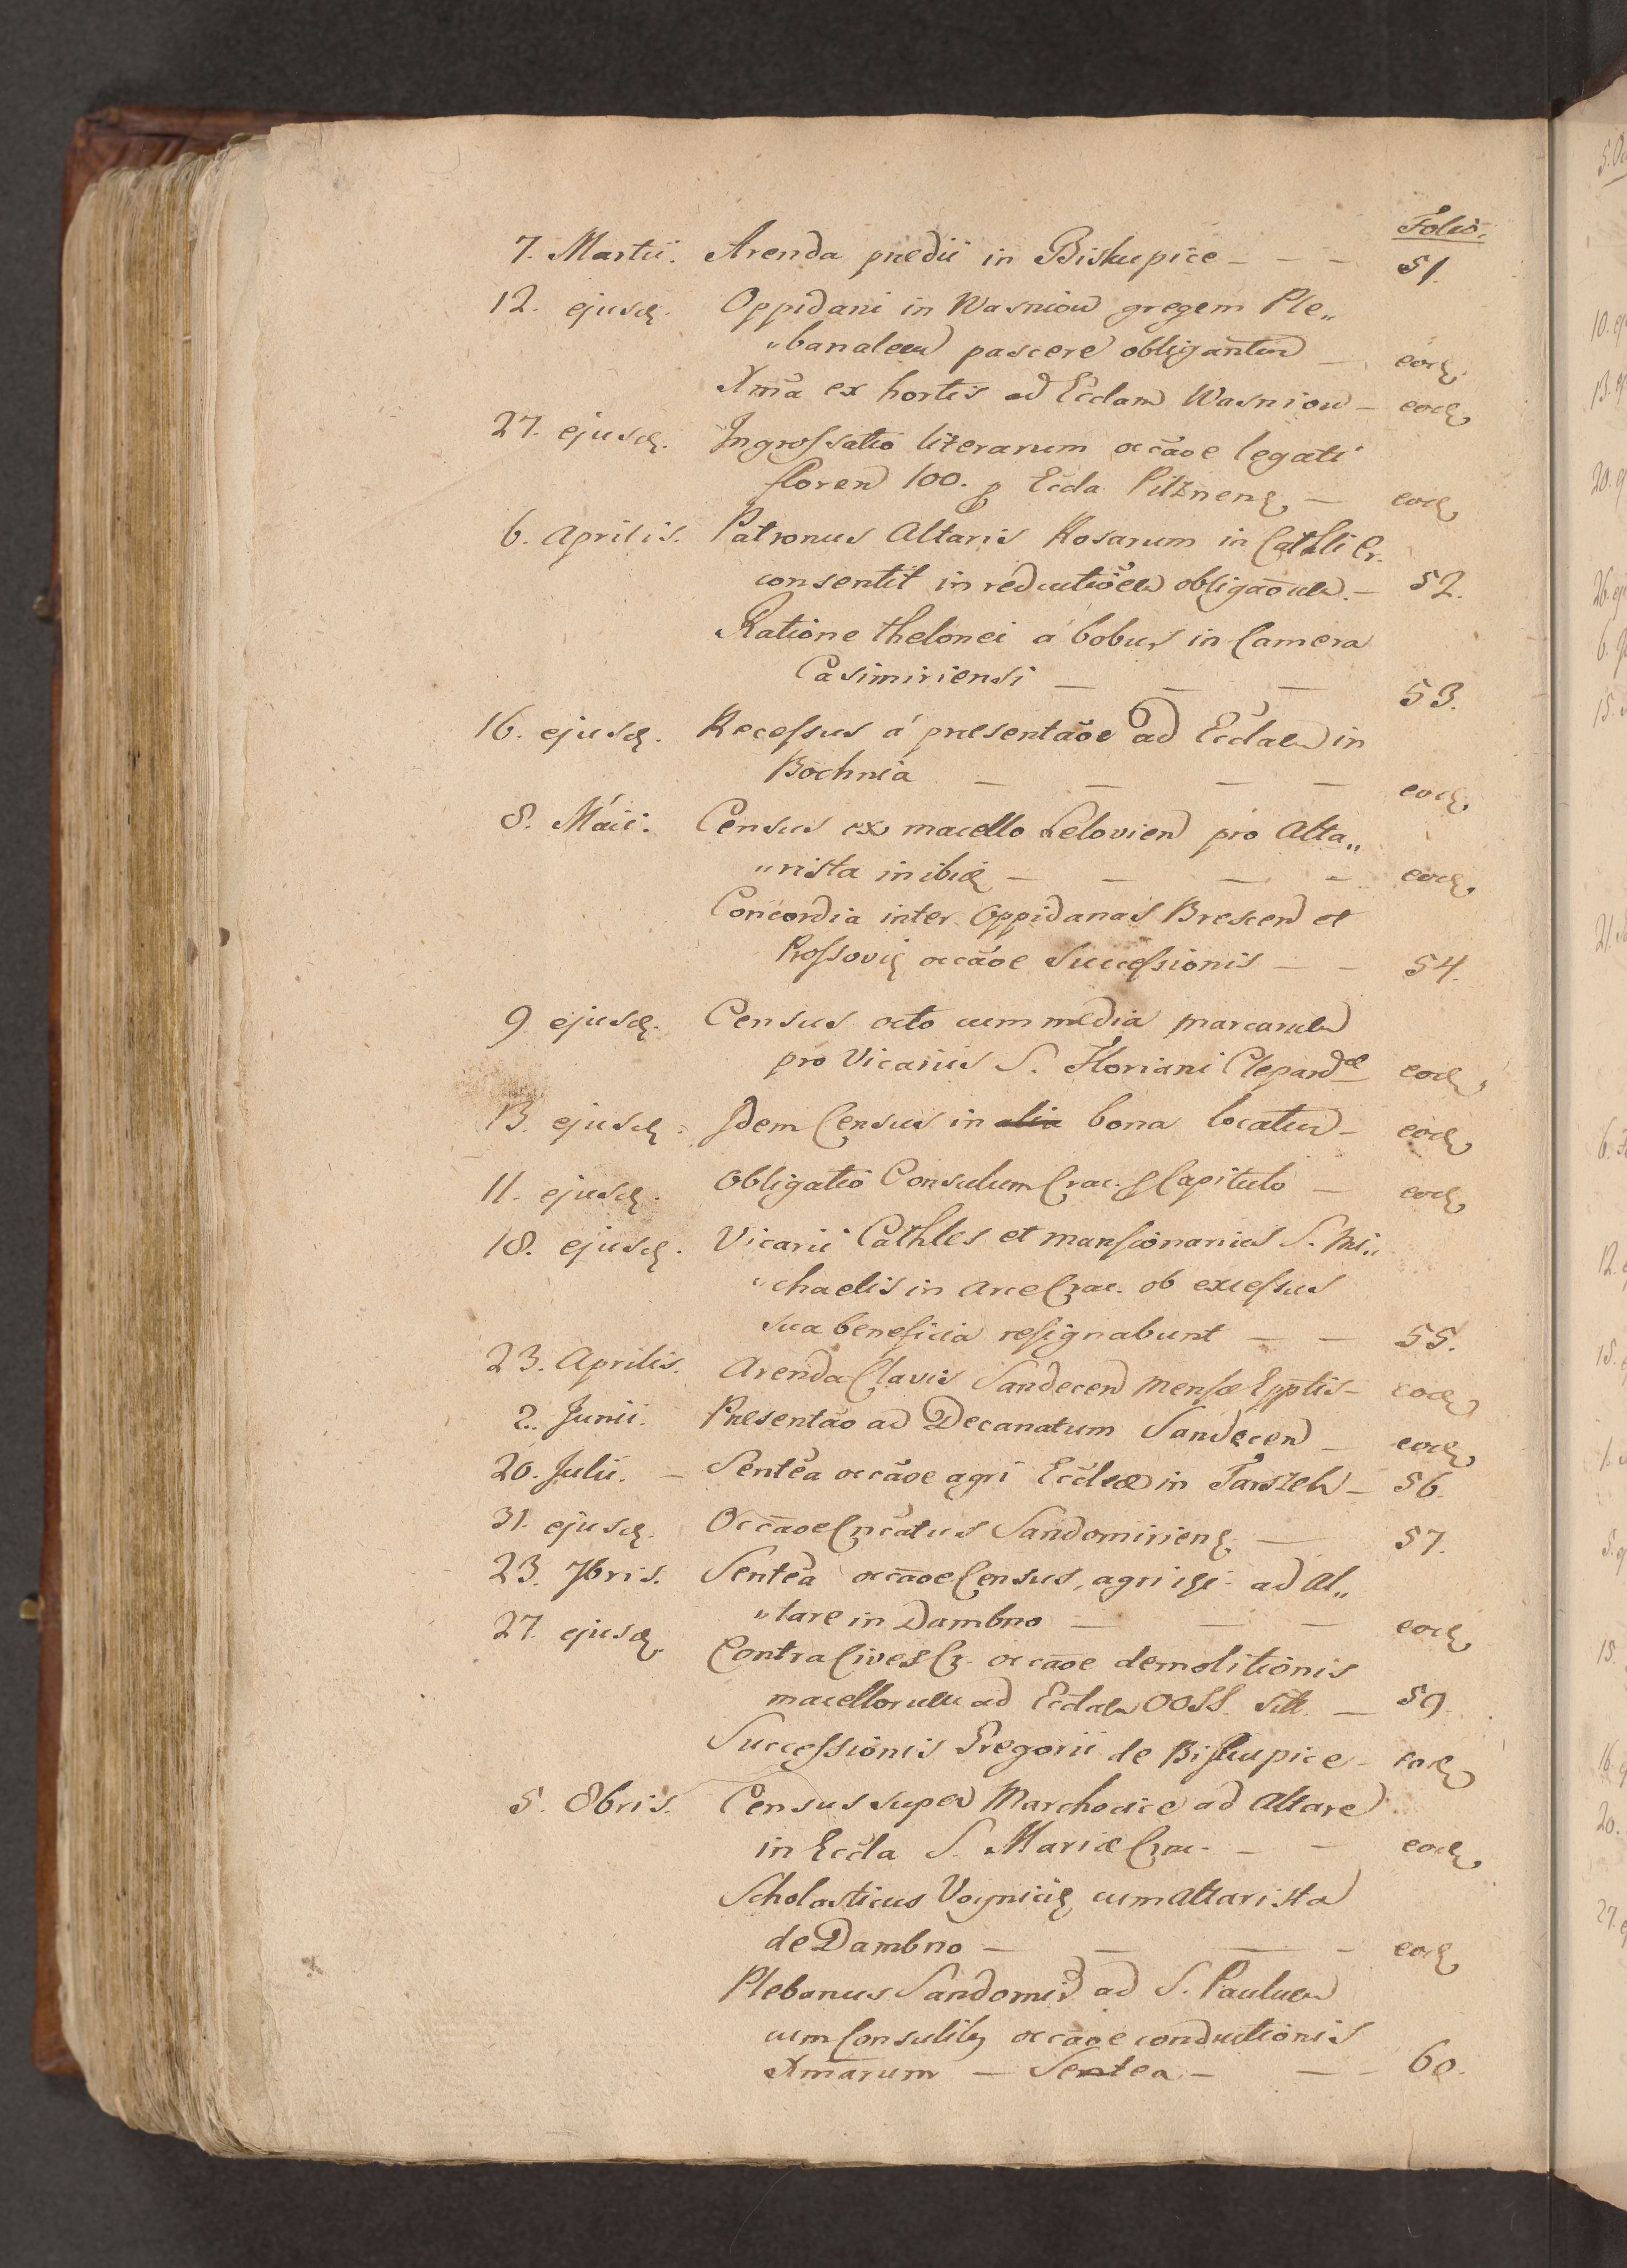 Folio.
7. Martii. Arenda prædii in Biskupice - - - 51.
12. ejusd. Oppidani in Wasniow gregem Ple„
„banalem pascere obligantur - eod.
Xma ex hortis ad Eccląm Wasniow - eod.
27. ejusd. Ingrossatio literarum occãoe legati
floren 100. p Eccla Pilznens. - eod.
6. Aprilis. Patronus Altaris Rosarum in Cathli Cr.
consentit in reductiõem obligaõum. - 52.
Ratione thelonei á bobus in Camera
Casimiriensi - - - 53.
16. ejusd. Recessus á præsentaõe ad Ecclam in
Bochnia - - - - eod.
8. Maii. Census ex macello Lelovien pro Alta„
„rista inibid. - - - - eod.
Concordia inter Oppidanos Brescen et
Rossovi occãoe Successionis - - 54.
9 ejusd. Census octo cum media marcarum
pro Vicariis S. Floriani Clepardæ eod.
13. ejusd. Idem Census in alia bona locatur - eod.
11. ejusd. Obligatio Consulum Crac. p Capitulo - eod.
18. ejusd. Vicarii Cathles et mansionarius S. Mi„
„chaelis in Arce Crac. ob excessus
sua beneficia resignabunt - - 55.
23. Aprilis. Arenda Clavis Sandecen mensæ Epptis - eod.
2. Junii. Præsentaõ ad Decanatum Sandecen - eod.
20. Julii. - Sentẽa occãoe agri Eccleæ in Tarszeh - 56.
31. ejusd. Occãoe Cricatus Sandomiriens. - 57.
23. 7bris. Sentẽa occãoe Census, agri ad Al„
„tare in Dambno - - - eod.
27. ejusd. Contra Cives Cr. occãoe demolitionis
macellorum ad Ecclam OOSS. Sit. - 59.
Successionis Gregorii de Biskupice - eod.
5. 8bris. Census super Marchocice ad Altare
in Eccla S. Mariæ Crac. - - eod.
Scholasticus Voynicis cum Altarista
de Dambno - - - - eod.
Plebanus Sandomir ad S. Paulum
cum Consulib9 occãoe conductionis
Xmarum - Sentea - - - 60.